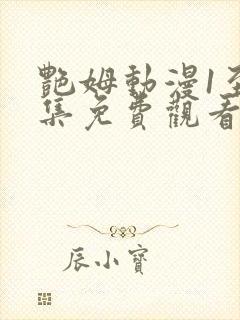 艷姆動漫1至
集免費觀看
辰小寶